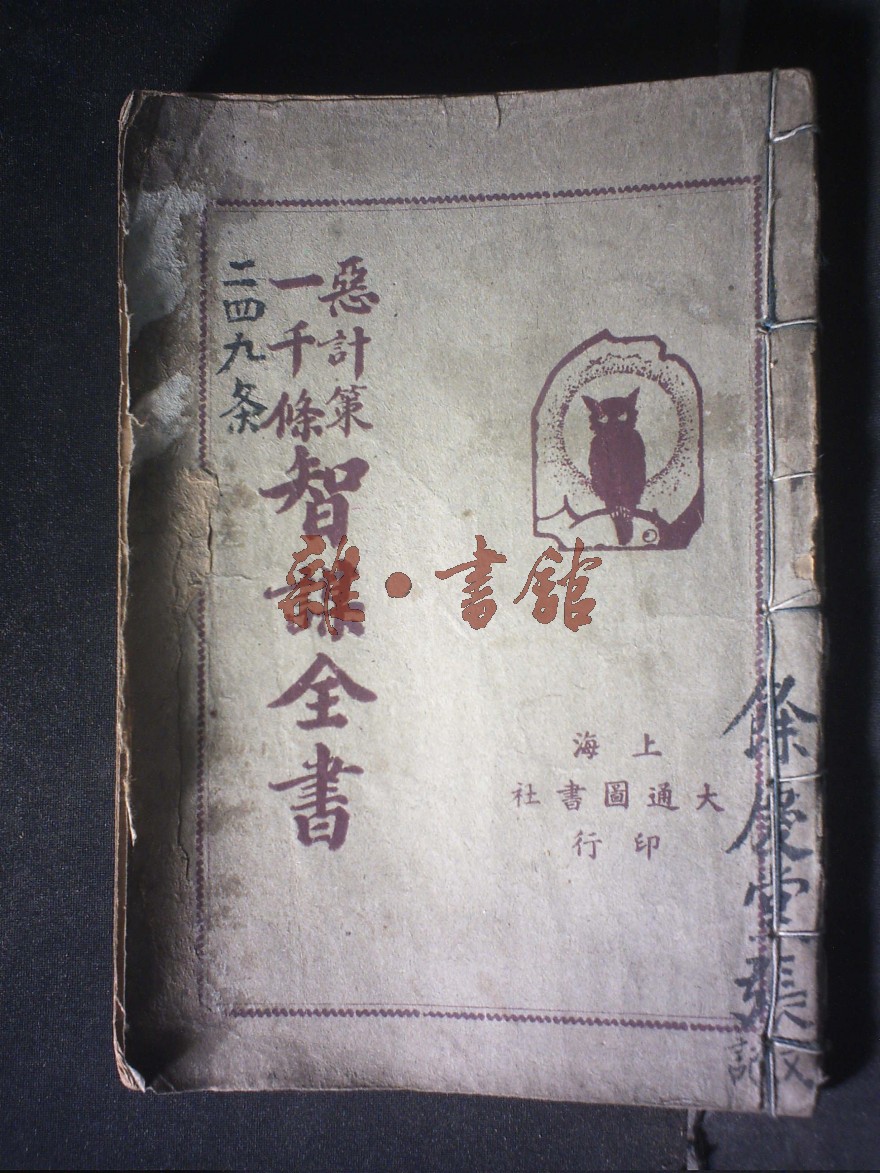 餘慶堂張記
上海
大通圖書社
印行
惡計策
一千條
智謀全書
二四九条
雜·書館